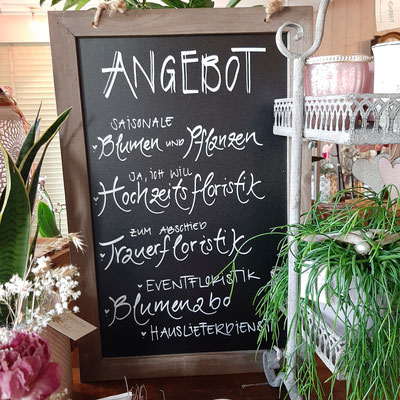 ANGEBOT
SAISONALE
Blumen UND Pflanzen
JA, ICH WILL
Hochzeitsfloristik
ZUM ABSCHIED
Trauerfloristik
EVENTFLORISTIK
Blumenabo
HAUSLIEFERDIENST